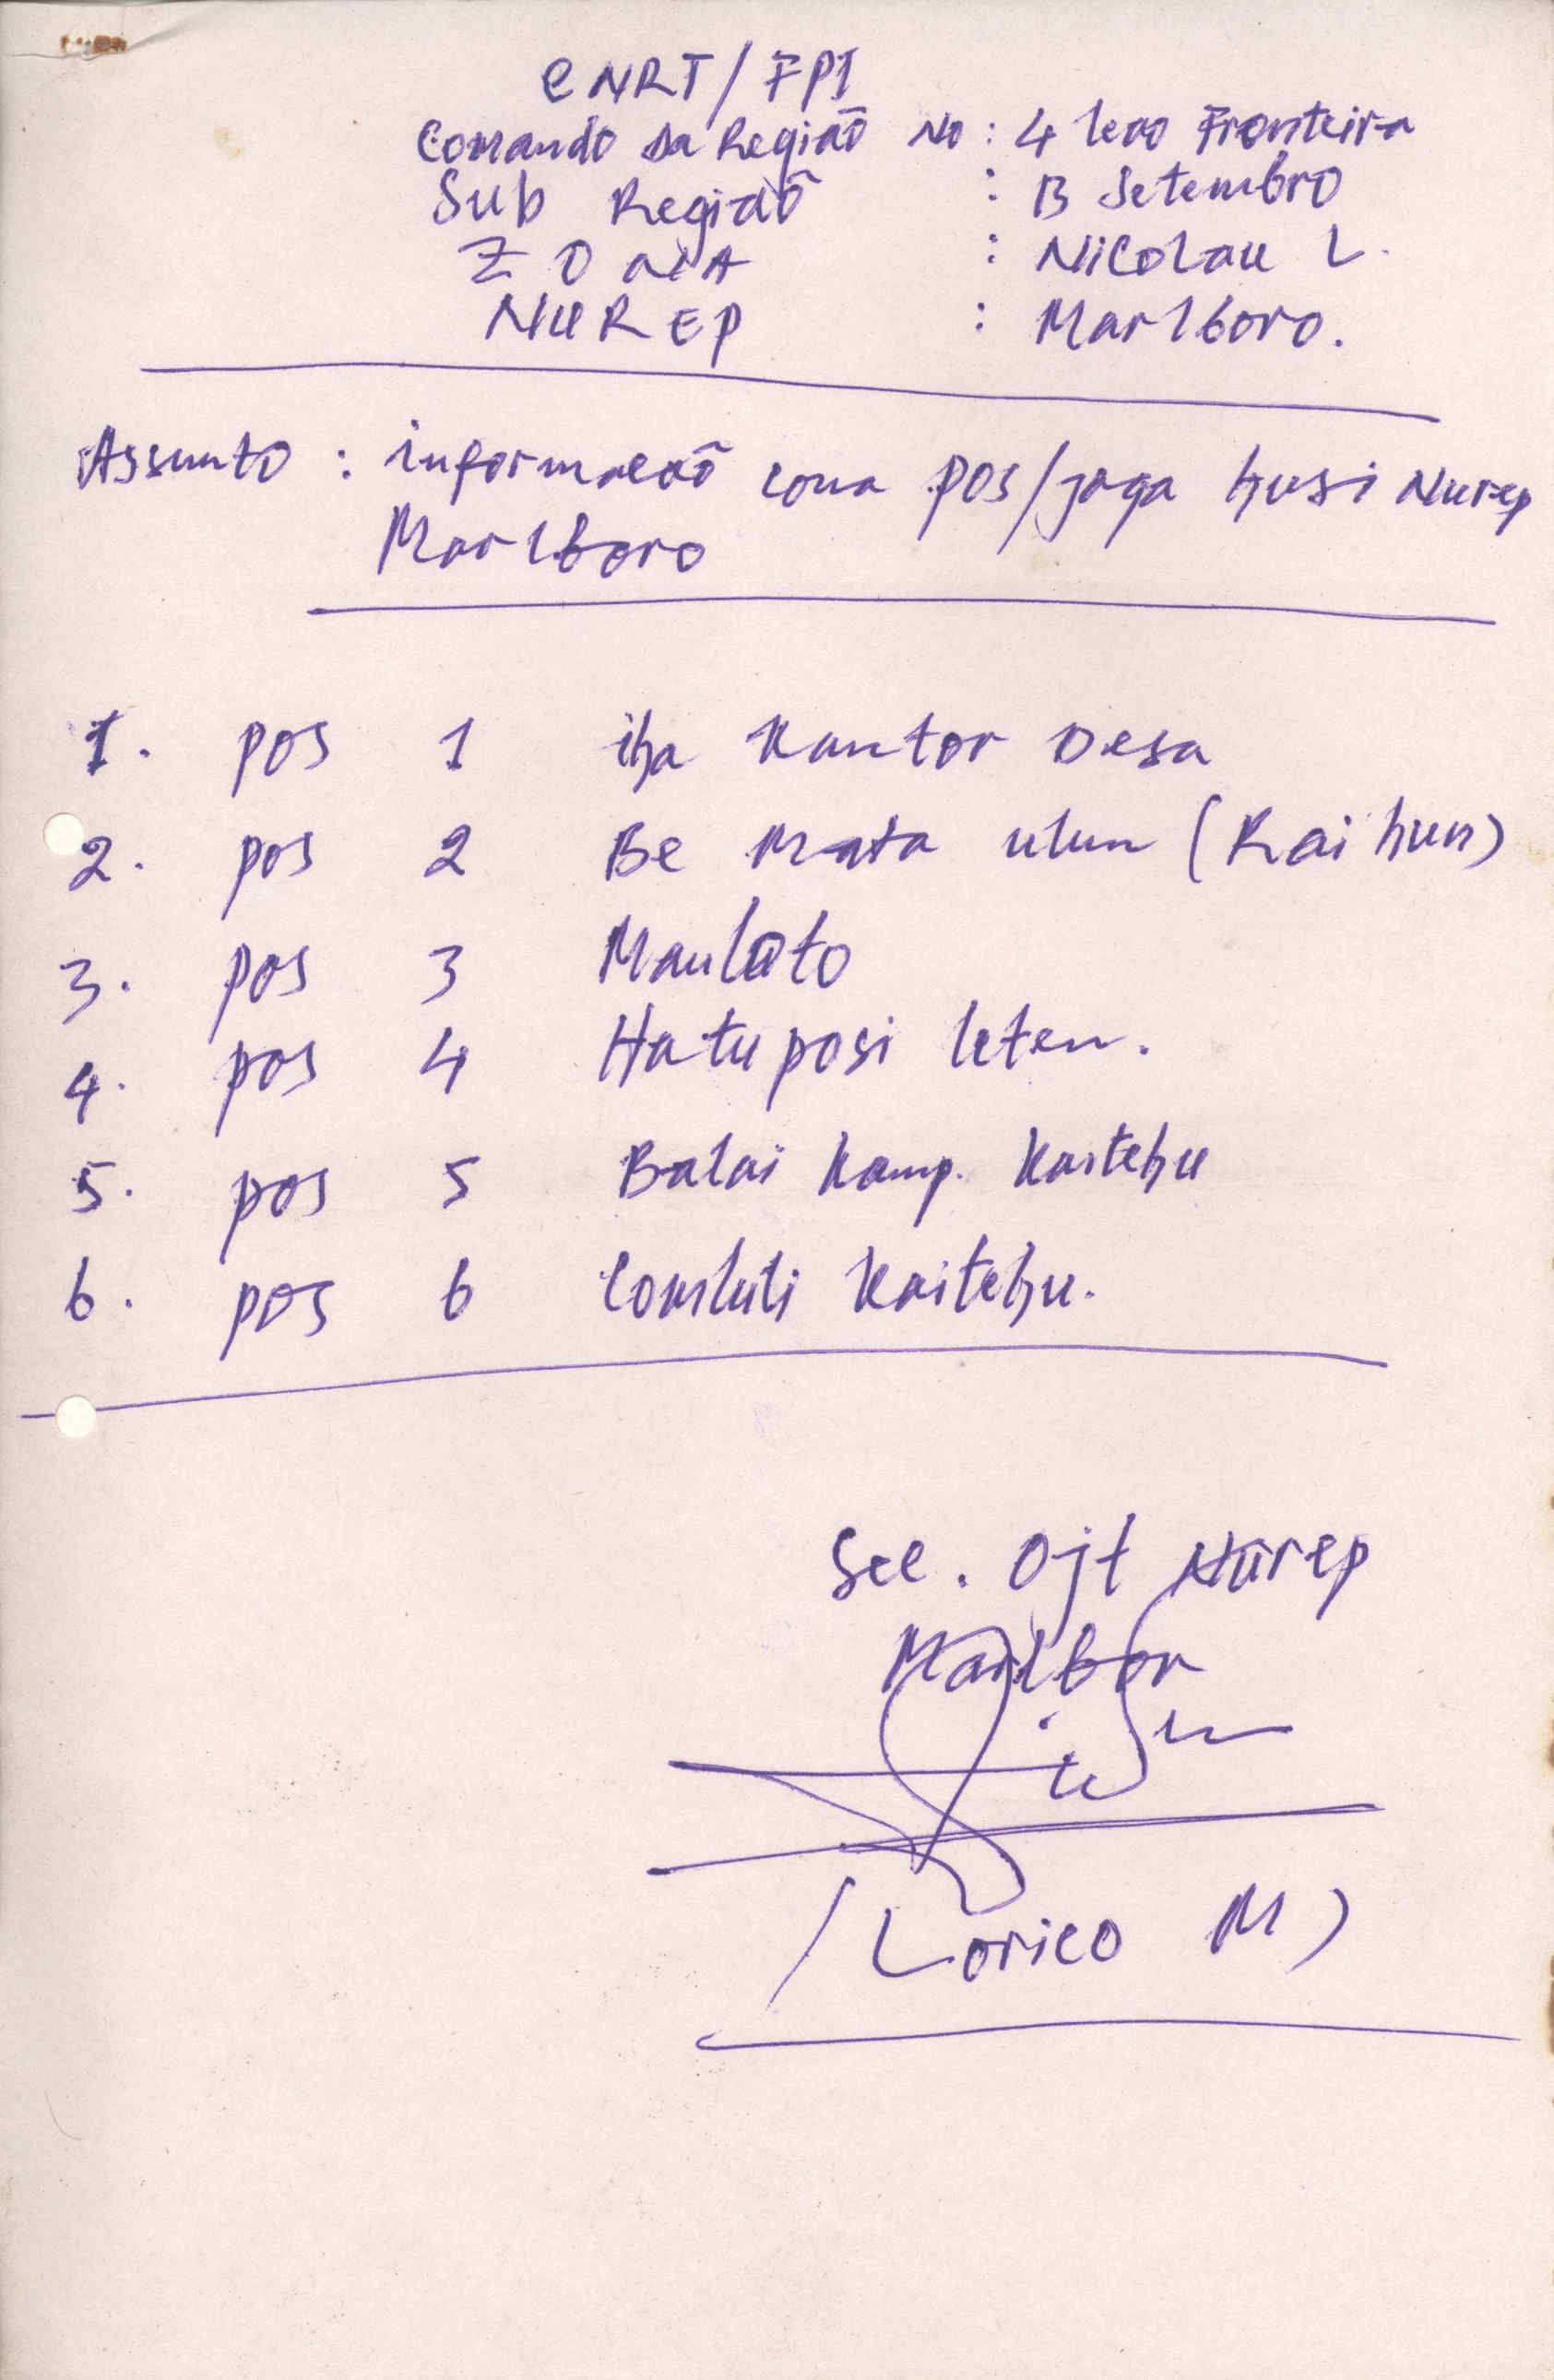 CNRT/FPI
Comando da Região No : 4 leao Fronteira
Sub Região : 13 Setembro
ZONA : Nicolau L.
NUREP : Marlboro.
Assunto : informacaõ cona pos/jaga husi Nurep
Marlboro
1. pos 1 iha Kantor Desa
2. pos 2 Be Mata ulun (Rai hun)
3. pos 3 Maulato
4. pos 4 Hatuposi leten.
5. pos 5 Balai Kamp. Kaitehu
6. pos 6 Kaitehu.
Sec. Ojt Nurep
Marlbor
(Lorico M)